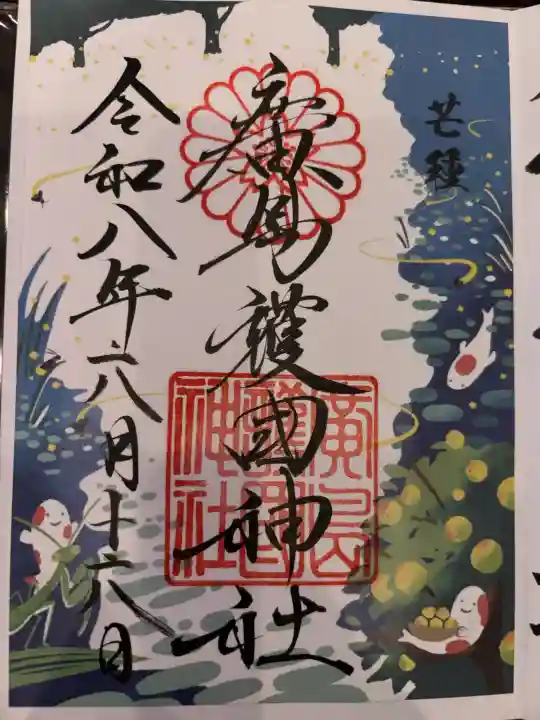 芒種
廣島護國神社
令和八年六月十六日
廣島
護國
神社